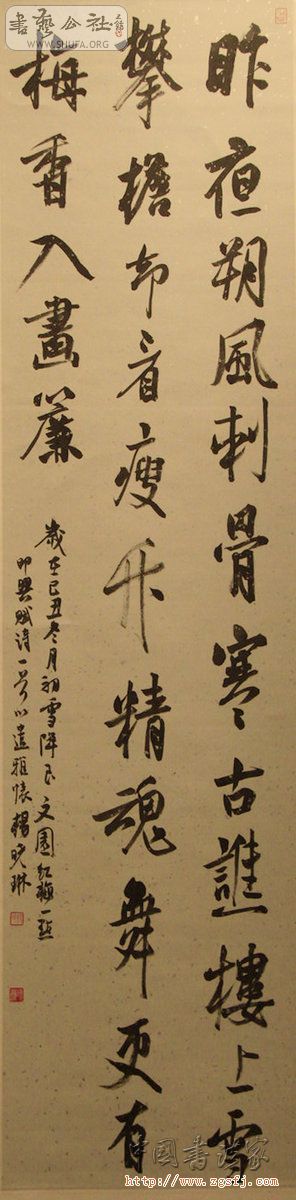 昨夜朔風刺骨寒古譙樓上雪
攀檐却看瘦竹精魂舞更有
梅香入畫簾
歲在己丑冬月初雪降于文園紅梅一點
即興賦詩一首以遣雅懷楊曉琳
書藝公社
WWW.SHUFA.ORG
中國書法家
www.zgsfj.com